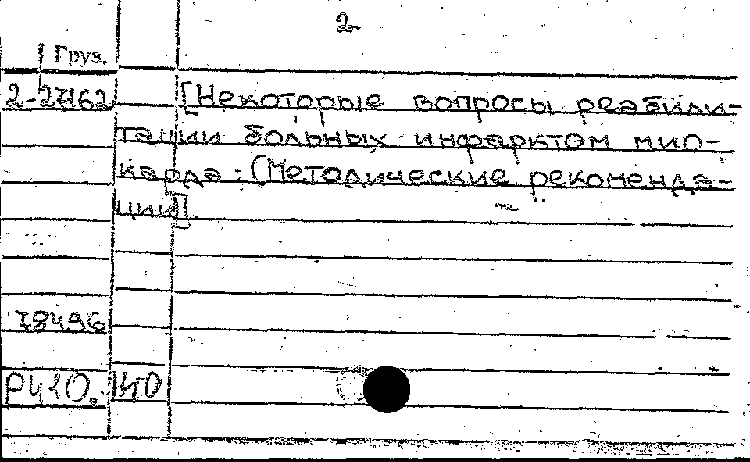 2
Груз.
2-27162 [Некоторые вопросы реабили-
тации больных инфарктом мио-
карда: (Методические рекоменда-
ции]
18496
Р410. 140